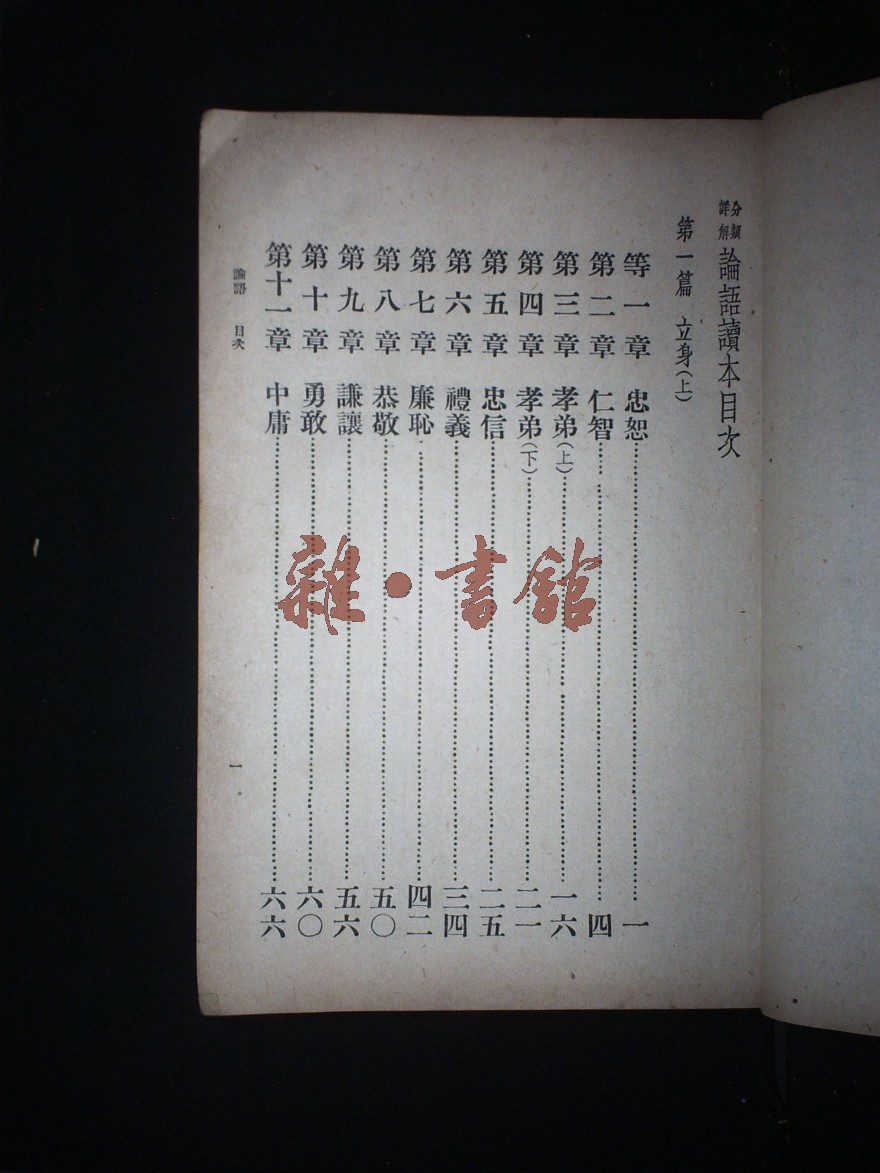 分類詳解 論語讀本目次
第一篇 立身(上)
等一章 忠恕……一
第二章 仁智……四
第三章 孝弟(上)……一六
第四章 孝弟(下)……二一
第五章 忠信……二五
第六章 禮義……三四
第七章 廉恥……四二
第八章 恭敬……五〇
第九章 謙讓……五六
第十章 勇敢……六〇
第十一章 中庸……六六
論語 目次 一
雜·書館